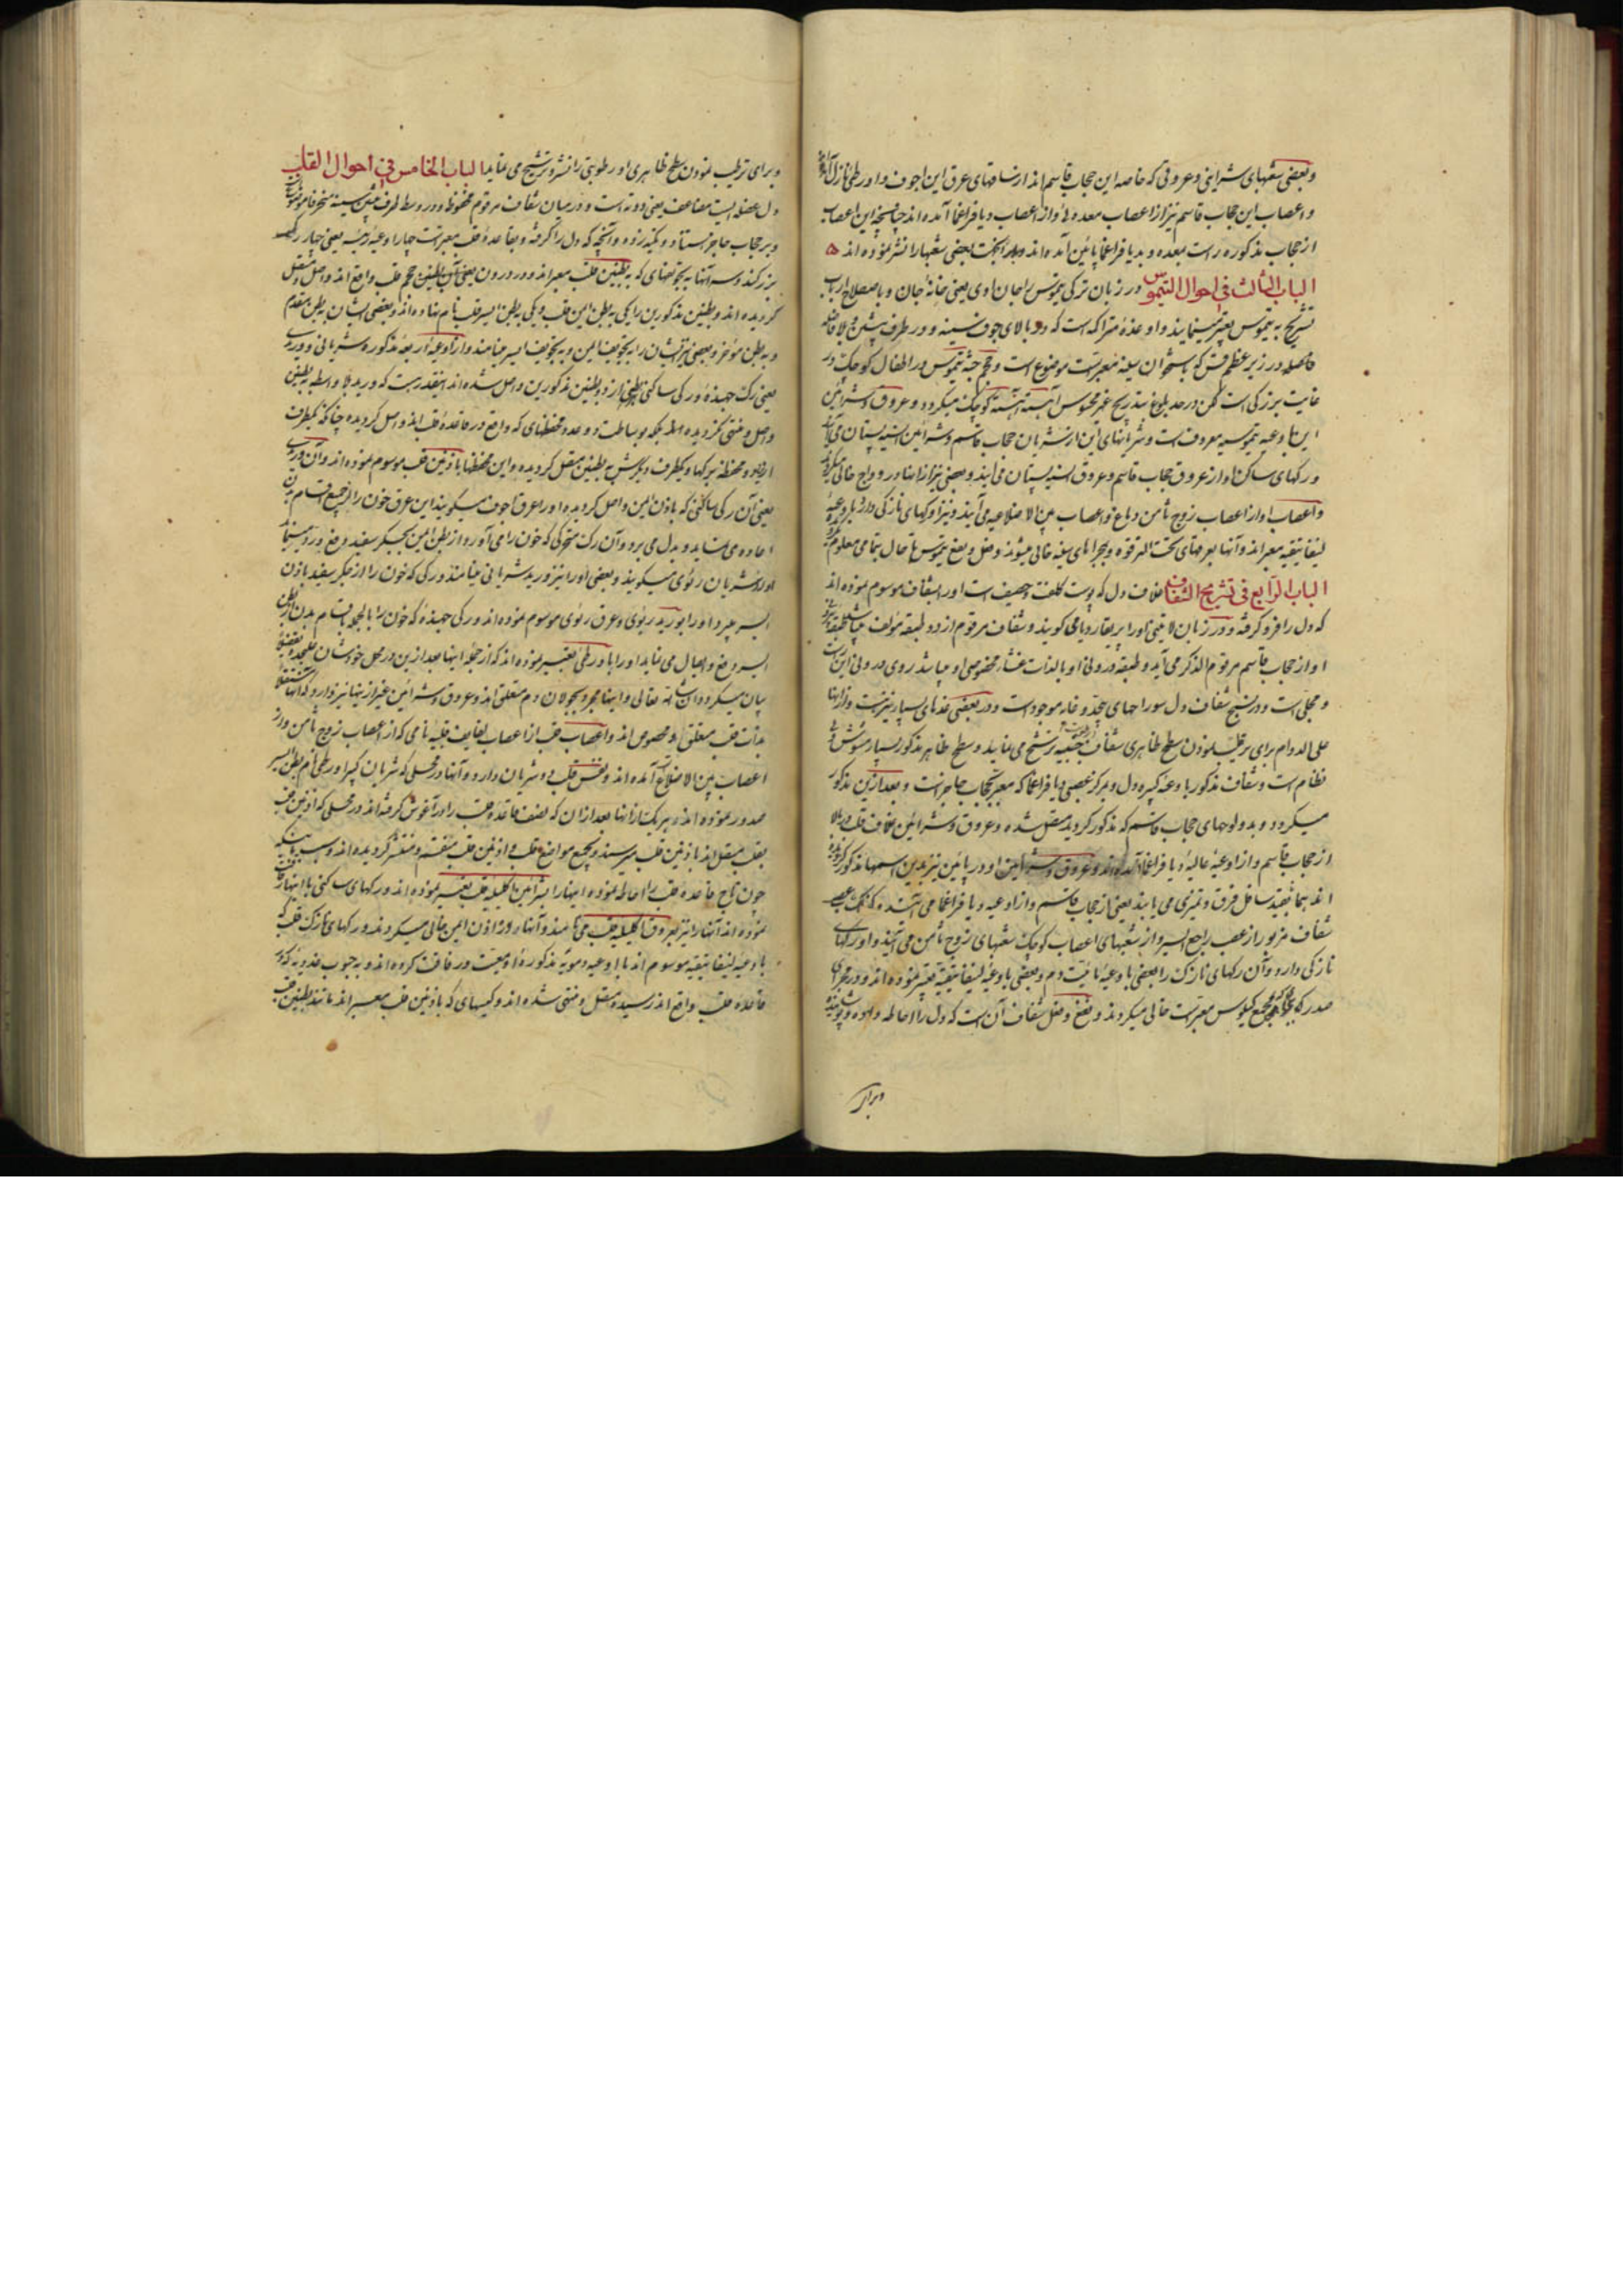 وبعضی شعبهای شرایینی وعروقی که خاصه این حجاب قاسم اند از ساقهای عرق این اجوف و اورطی نازل
واعصاب این حجاب قاسم نیز از اعصاب معده و از اعصاب دیافراغما آمده اند چنانچه این اعصاب
از حجاب مذکوره راست بمعده و بدیافراغما پائین آمده اند بعضی شعبها را نشر نموده اند
الباب الثالث فی احوال التیموس در زبان ترکی تیموس را جان اوی یعنی خانهٔ جان و باصطلاح ارباب
تشریح به تیموس تعبیر مینمایند و او غدهٔ متراکه است که در بالای جوف سینه و در طرف پیش و
در زیر عظم قس که باستخوان سینه معبر است موضوع است و حجم جثهٔ تیموس در اطفال کوچک در
غایت بزرگی است لکن در حد بلوغ بتدریج غیر محسوس آهسته آهسته کوچک میکردد و عروق و شرائین
این باوعیه تیموسیه معروف است و شریانهای این از شریان حجاب قاسم و شرائین انسیه پستان می
ورکهای ساکن او از عروق حجاب قاسم و عروق انسیه پستان می آیند و بعضی نیز از اینها در وداج خالی
واعصاب او از اعصاب زوج ثامن دماغ و اعصاب بین الاضلاعیه می آیند و نیز او رکهای نازکی دارد
لیفاتیقیه معبر اند و آنها بعرضای تحت الترقوه و بمجراهای سینه خالی میشوند و فعل و نفع تیموس تا حال بتمامی معلوم
الباب الرابع فی تشریح الشغاف غلاف دل که پوست کلفت و صیف است اورا بشغاف موسوم نموده اند
که دل را فرو گرفته و در زبان لاتینی اورا پریقاردیا می کویند و شغاف مرقوم از دو طبقه مؤلف
او از حجاب قاسم مرقوم الذکر می آید و طبقه درونی او بالذات غشاء مخصوصی او میباشد روی درونی این
ومجلی است و در نسیج شغاف دل سوراخهای بیحد و غایه موجود است و در بعضی غدهای بسیار نیز هست
علی الدوام برای ترطیب نمودن سطح ظاهری شغاف ترشح می نماید و سطح ظاهر مذکور بسیار
نظام است و شغاف مذکور باوعیهٔ کبیره دل و بمرکز عصبی دیافراغما که معبر بحجاب حاجز است و بعد ازین مذکور
میکردد و بدولوحهای حجاب قاسم که مذکور کردید متصل شده و عروق و شرائین غلاف قلب در بالا
از حجاب قاسم و از اوعیهٔ عالیهٔ دیافراغما آمده اند و عروق و شرائین او در پائین نیز بدین اسمها مذکور
اند تفرق و تمیزی می یابند یعنی از حجاب قاسم و از اوعیه دیافراغما می آیند
شغاف مزبور از عصب راجع ایسر و از شعبهای اعصاب کوچک شعبهای زوج ثامن می آیند و او رکهای
نازکی دارد و آن رکهای نازک را بعضی باوعیهٔ مائیت دم و بعضی باوعیهٔ لیفاتیقیه تعبیر نموده اند و در مجرای
صدر که بمجمع کیلوس معبر است خالی میکردند و نفع و فعل شغاف آن است که دل را احاطه داده
وبرای
وبرای ترطیب نمودن سطح ظاهری او رطوبتی را نشر و ترشیح می نماید الباب الخامس فی احوال القلب
دل عضله ایست مضاعف یعنی دوته است و در میان شغاف مرقوم محفوظ و در وسط طرف پیش سینه منحرفا
وبر حجاب حاجز استناد و تکیه زده و آنچه که دل را گرفته و بقاعدهٔ قلب معبر است چهار اوعیهٔ رئیسه یعنی چهار رک
بزرکند وسه آنها به بجوفضای که به بطنین قلب معبر اند و در درون حجم قلب واقع اند واصل و متصل
کردیده اند و بطنین مذکورین را یکی به بطن ایمن قلب و یکی به بطن ایسر قلب نام نهاده اند و بعضی ایشان به بطن مقدم
و به بطن مؤخر و بعضی نیز ایشان را به تجویف ایمن و به تجویف ایسر مینامند و از اوعیهٔ اربعهٔ مذکوره شریانی و وریدی
یعنی رک جهنده و رکی ساکن از دو بطنین مذکورین واصل شده اند اینقدر هست که ورید بلا واسطه به بطنین
واصل و منتهی نکردیده اند بلکه بوساطت دو عدد محفظهای که واقع در قاعدهٔ قلب اند واصل کردیده چنانکه یکطرف
این دو محفظه برکها و یکطرف دیگرش به بطنین متصل کردیده و این محفظها باذنین قلب موسوم نموده اند و آن وریدی
یعنی آن رکی ساکنی که باذن ایمن واصل کردیده اورا عرق اجوف میکویند این عرق خون را از جمیع اقسام بدن
اعاده می نماید و بدل می برد و آن رک متحرکی که خون را می آورد از بطن ایمن بجکر سفید دفع و رد مینماید
اورا شریان رئوی میکویند و بعضی اورا نیز ورید شریانی مینامند و رکی که خون را از جکر سفید باذن
ایسر میبرد اورا بورید ریوی و عرق رئوی موسوم نموده اند و رکی جهندهٔ که خون را بالجمله اقسام بدن از بطن
ایسر دفع و ایصال می نماید اورا باورطی تعبیر نموده اند که از جمله اینها بعد ازین در محل خودشان
بیان میکردد ان شاء الله تعالی و اینها بمجرد بجولان دم متعلق اند و عروق و شرائین غیر ازینها نیز دارد که آنها
بذات قلب متعلق و مخصوص اند و اعصاب قلب از اعصاب لفایف قلبیه نامی که از اعصاب زوج ثامن و از
اعصاب بین الاضلاع آمده اند و نفس قلب دو شریان دارد و آنها در محلی که شریان کبیر اورطی نام بطن ایسر
صدور نموده اند و هر یک از اینها بعد از آن که نصف قاعدهٔ قلب را در آغوش گرفته اند در محلی که اذنین قلب
بقلب متصل اند باذنین قلب میرسند و بجمیع مواضع قلب و اذنین قلب منقسم و منتشر کردیده اند و بسبب اینکه
چون تاج قاعدهٔ قلب را احاطه نموده اینها را شرائین اکلیلیه قلب تعبیر نموده اند و رکهای ساکنی با اینها
نموده اند آنها را نیز بعروق اکلیلیه قلب می نامند و آنها در اذن ایمن خالی میکردند و رکهای نازک قلب که
باوعیهٔ لیفاتیقیه موسوم اند با اوعیهٔ دمویهٔ مذکوره معیت و رفاقت کرده اند و به جبوب غددیه که در
قاعدهٔ قلب واقع اند رسیده متصل و منتهی شده اند و کیسهای که باذنین قلب معبر اند مانند بطنین قلب